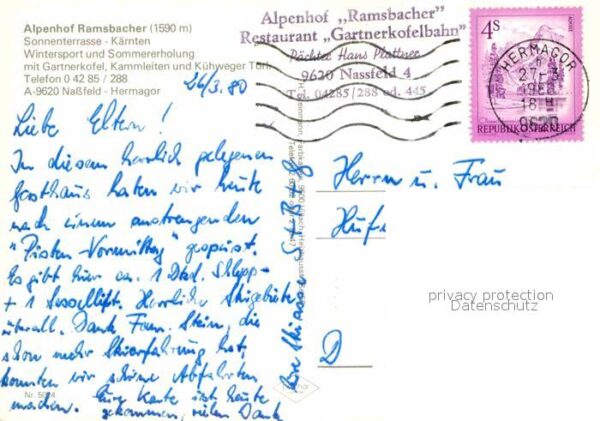 Alpenhof Ramsbacher (1590 m)
Sonnenterrasse - Kärnten
Wintersport und Sommererholung
mit Gartnerkofel, Kammleiten und Kühweger Törl
Telefon 0 42 85 / 288
A-9620 Naßfeld - Hermagor
Alpenhof „Ramsbacher"
Restaurant „Gartnerkofelbahn"
Pächter Hans Plattner
9620 Nassfeld 4
Tel. 04285/288 od. 445
4S
REPUBLIK ÖSTERREICH
HERMAGOR
27.-3
18 H
9620
26/3.80
Liebe Eltern!
In diesem herrlich gelegenen
Gasthaus haben wir heute
nach einem anstrengenden
"Pisten-Vormittag" gespeist.
Es gibt hier ca. 1 Dtzd. Schlepp-
+ 1 Sessellift. Herrliche Skigebiete
überall. Dank Fam. Stein, die
schon mehr Skierfahrung hat,
konnten wir schöne Abfahrten
machen. Eure Karte ist heute
gekommen, vielen Dank
Herrn u. Frau
Hufe
D
privacy protection
Datenschutz